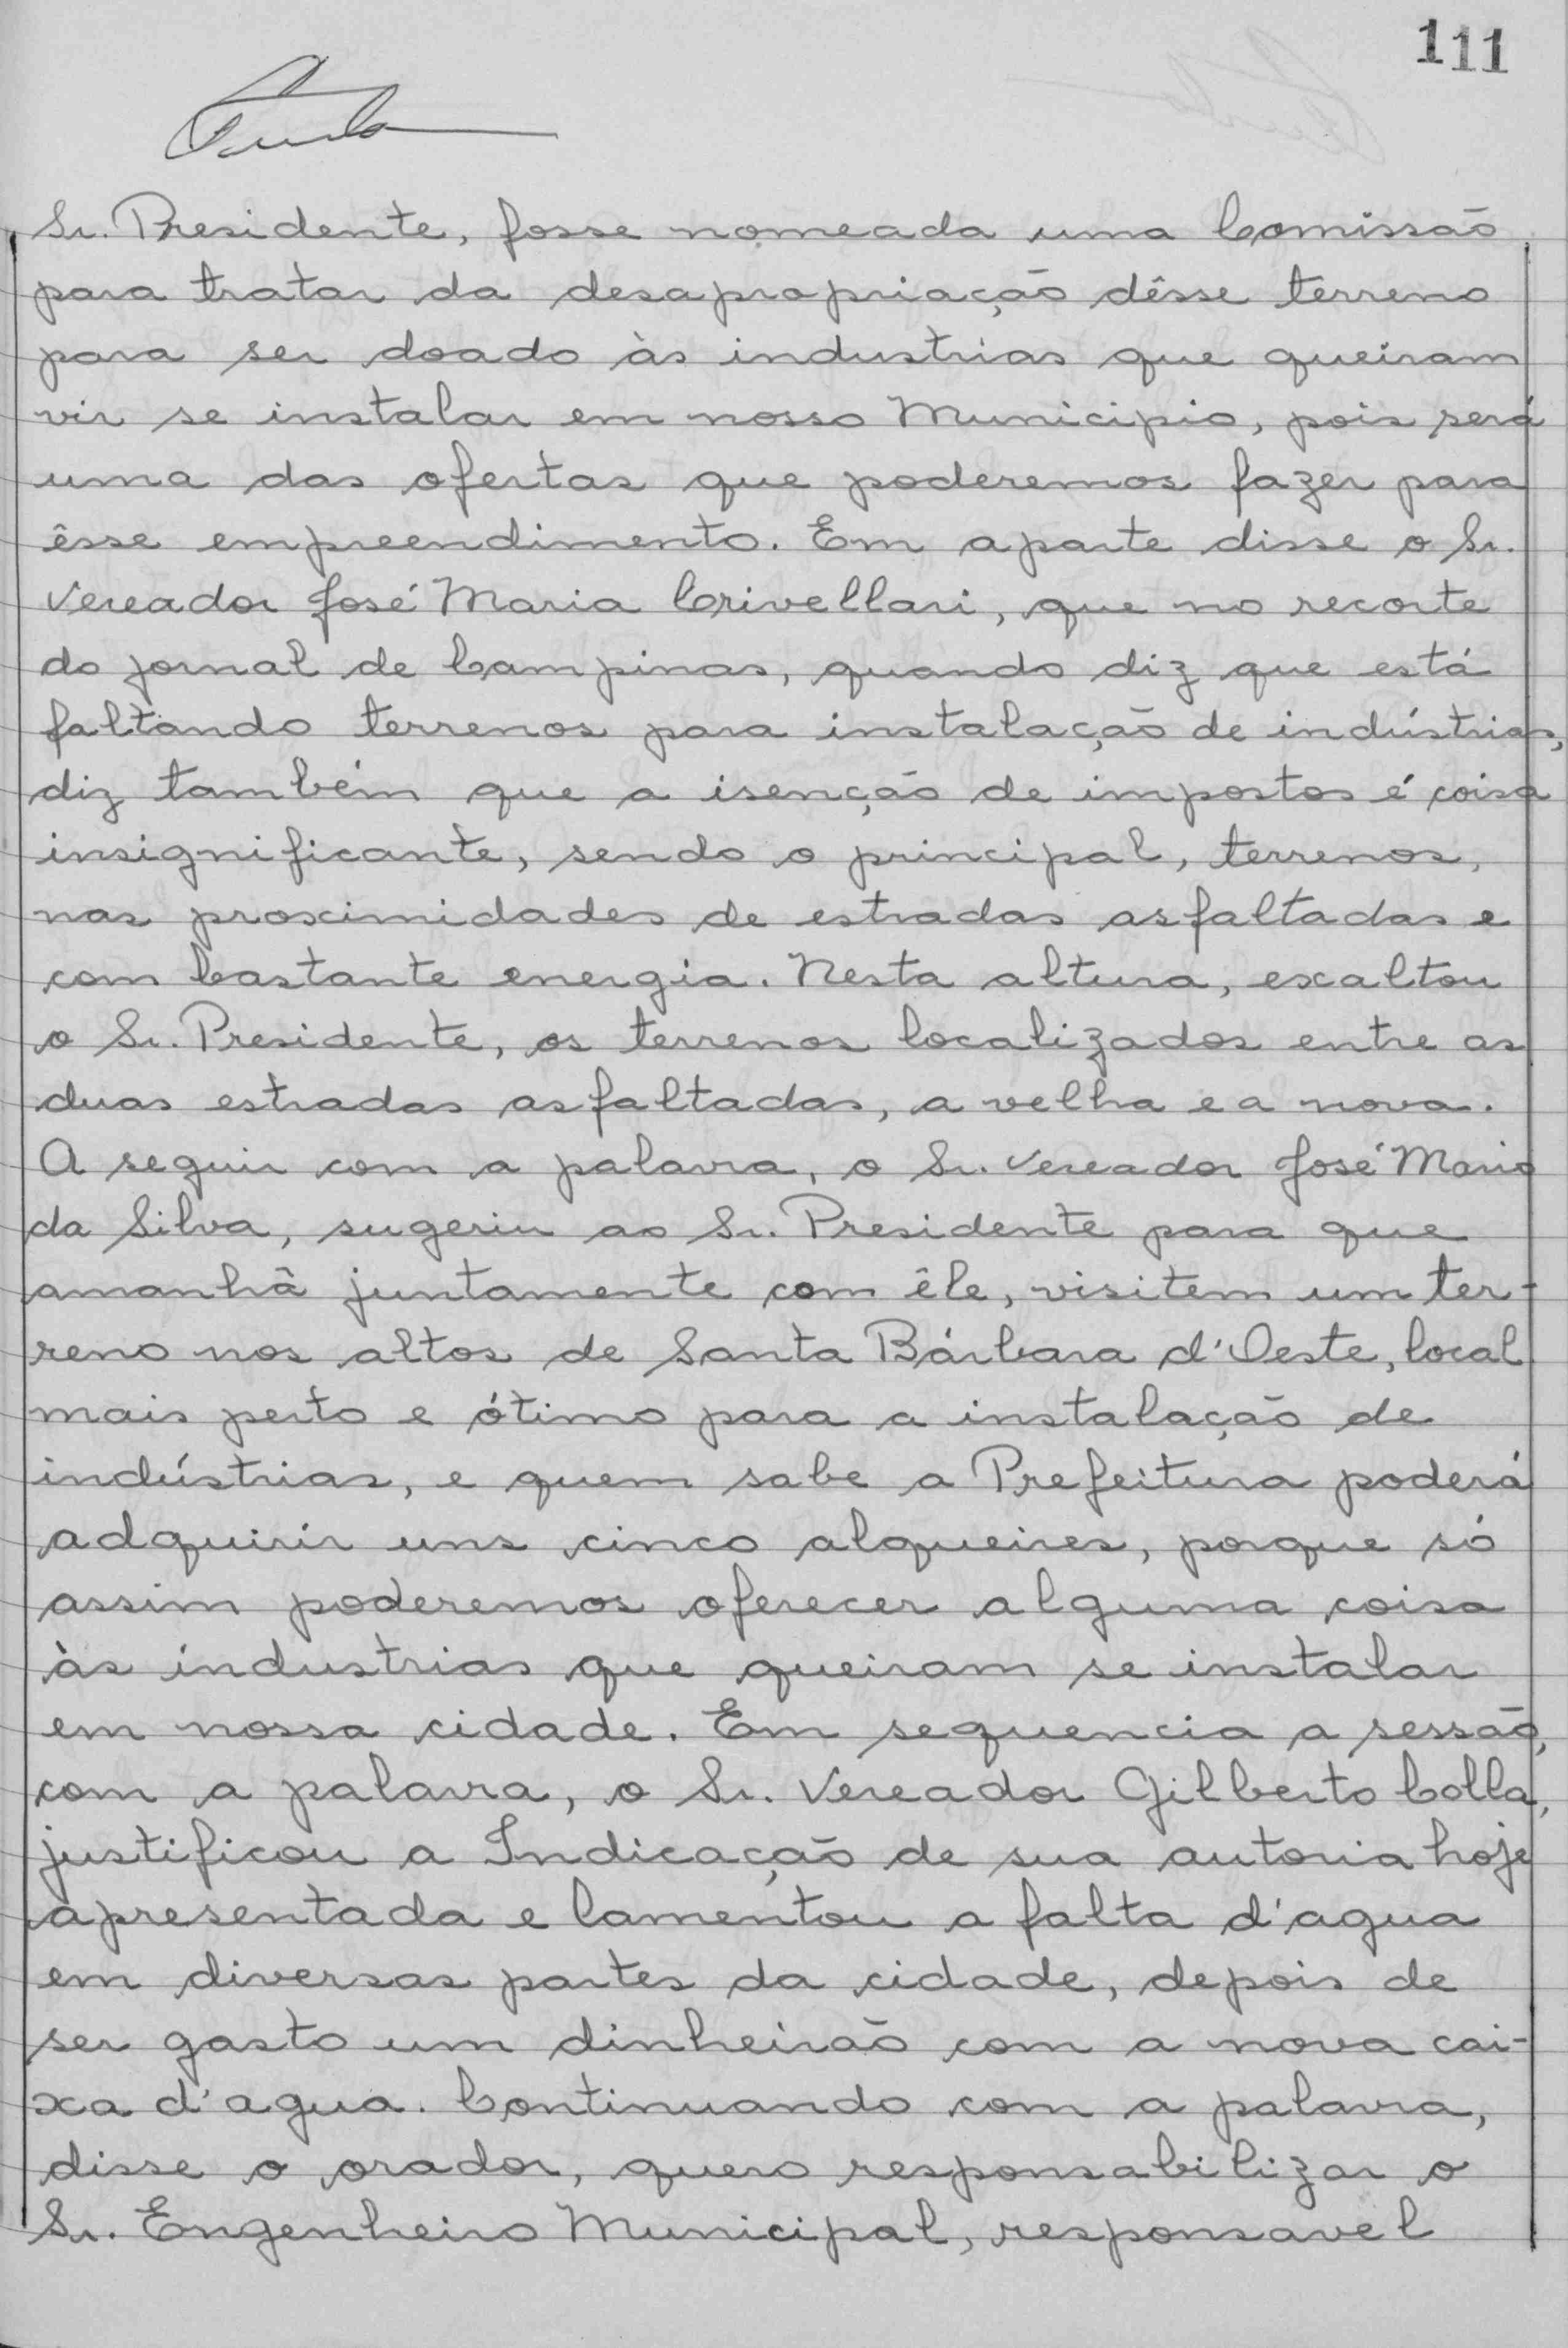 111
Sr. Presidente, fosse nomeada uma Comissão
para tratar da desapropriação dêsse terreno
para ser doado às industrias que queiram
vir se instalar em nosso Municipio, pois será
uma das ofertas que poderemos fazer para
êsse empreendimento. Em aparte disse o Sr.
Vereador José Maria Crivellari, que no recorte
do jornal de Campinas, quando diz que está
faltando terrenos para instalação de indústrias,
diz também que a isenção de impostos é coisa
insignificante, sendo o principal, terrenos,
nas proximidades de estradas asfaltadas e
com bastante energia. Nesta altura, exaltou
o Sr. Presidente, os terrenos localizados entre as
duas estradas asfaltadas, a velha e a nova.
A seguir com a palavra, o Sr. Vereador José Maria
da Silva, sugeriu ao Sr. Presidente para que
amanhã juntamente com êle, visitem um ter-
reno nos altos de Santa Bárbara d'Oeste, local
mais perto e ótimo para a instalação de
indústrias, e quem sabe a Prefeitura poderá
adquirir uns cinco alqueires, porque só
assim poderemos oferecer alguma coisa
às industrias que queiram se instalar
em nossa cidade. Em sequencia a sessão,
com a palavra, o Sr. Vereador Gilberto Colla,
justificou a Indicação de sua autoria hoje
apresentada e lamentou a falta d'agua
em diversas partes da cidade, depois de
ser gasto um dinheirão com a nova cai-
xa d'agua. Continuando com a palavra,
disse o orador, quero responsabilizar o
Sr. Engenheiro Municipal, responsavel